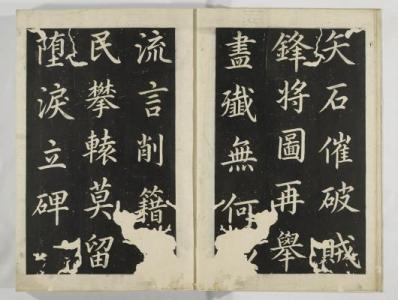 矢石催破賊
鋒將圖再舉
盡殲無何
流言削籍
民攀轅莫留
堕淚立碑